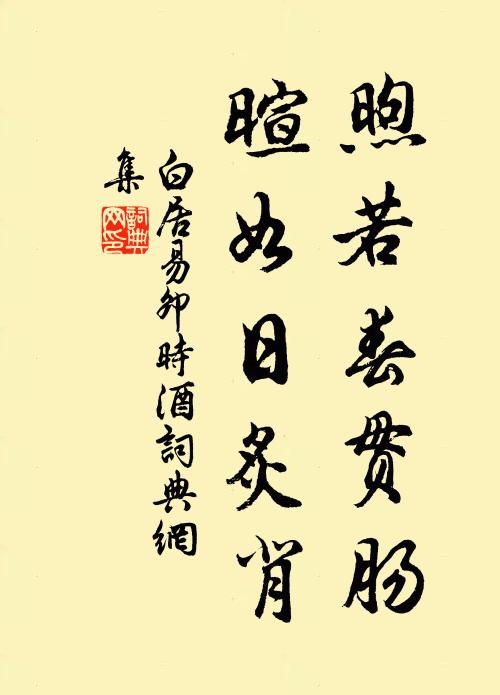 煦若春貫肠
暄如日炙背
白居易卯時酒詞典網
集
詞典网印